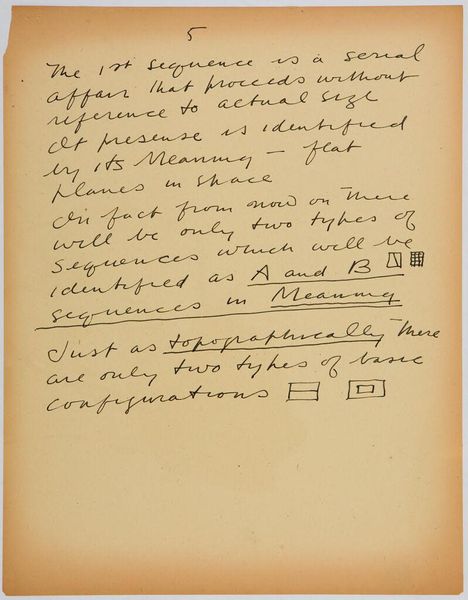 5
The 1st sequence is a serial
affair that proceeds without
reference to actual size
At presense is identified
by its Meaning – flat
planes in space
In fact from now on There
will be only two types of
sequences which will be
identified as A and B
sequences in Meaning
Just as topographically There
are only two types of basic
configurations